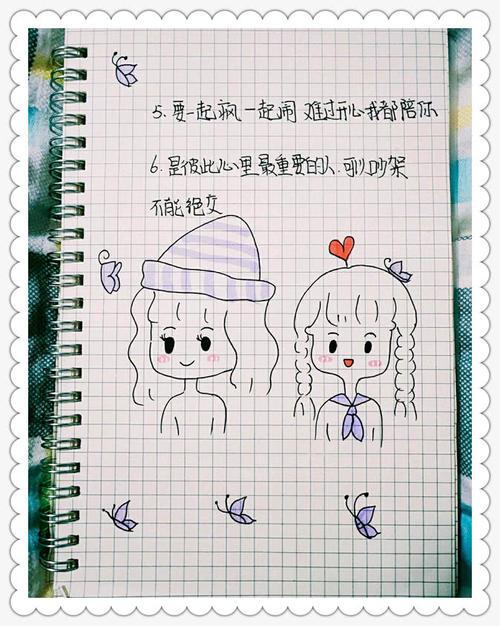 5、要一起疯 一起闹 难过开心我都陪你
6、是彼此心里最重要的人、可以吵架
不能绝交